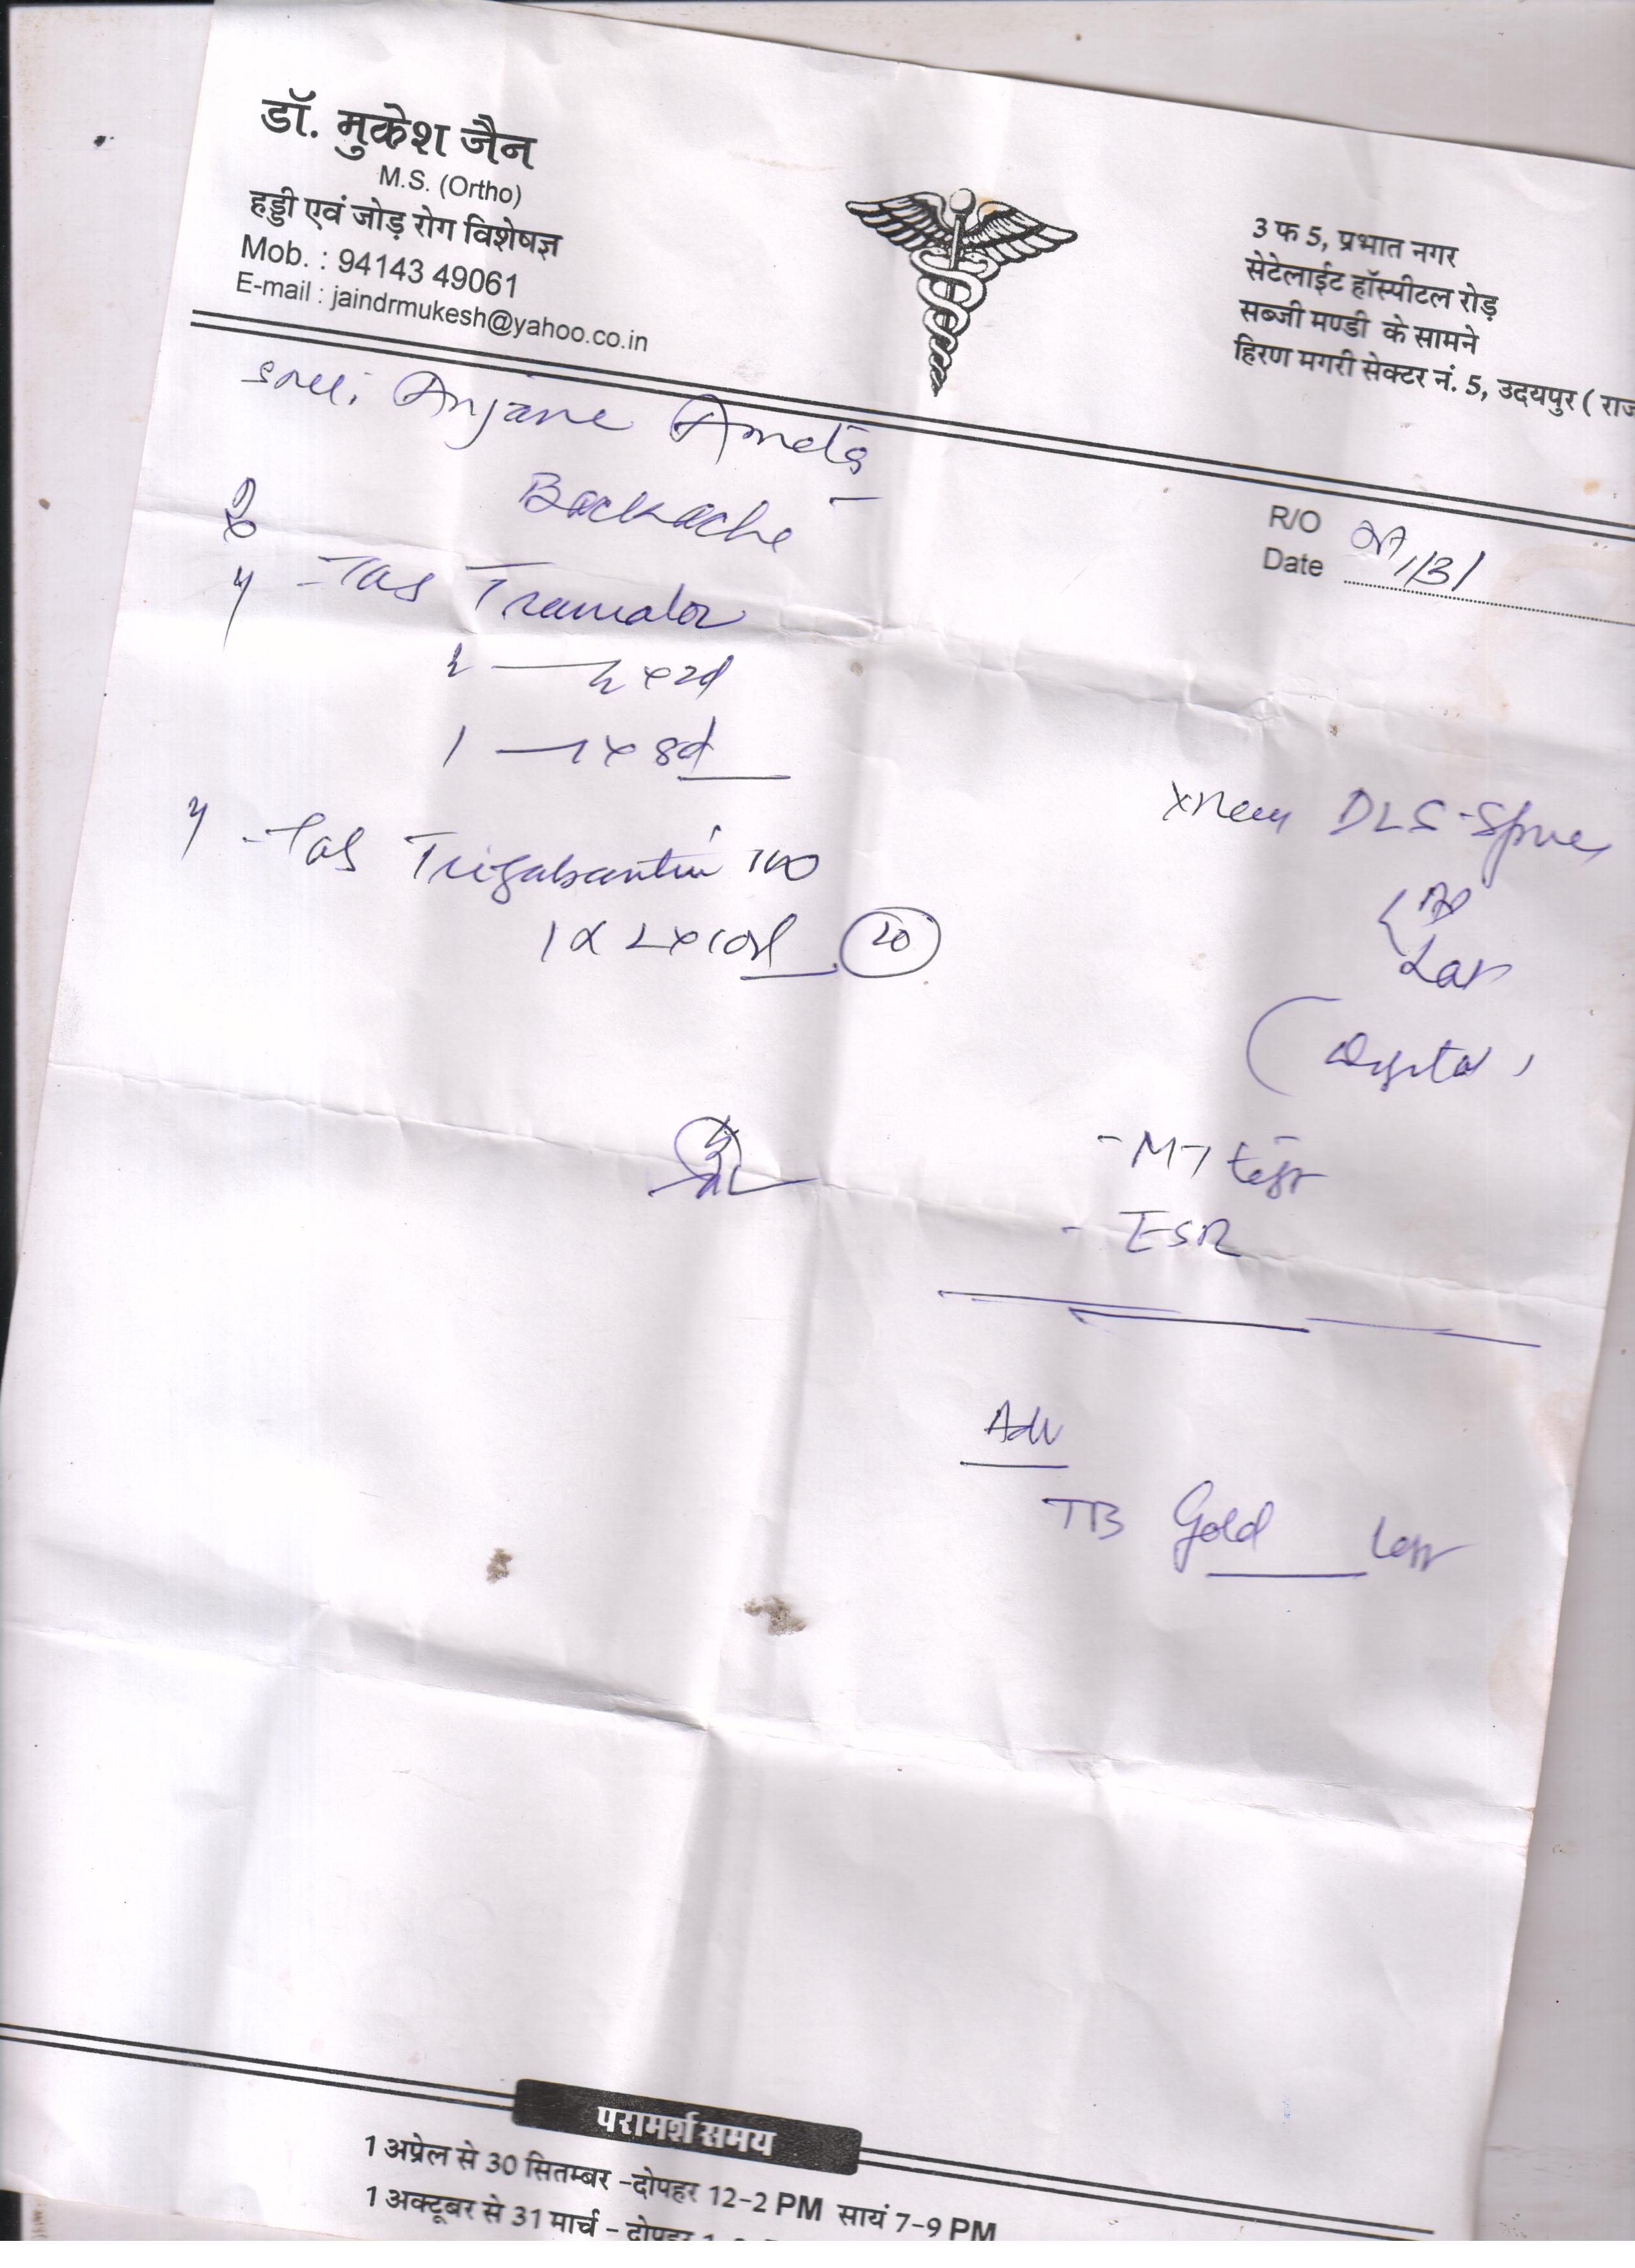 डॉ. मुकेश जैन
M.S. (Ortho)
हड्डी एवं जोड़ रोग विशेषज्ञ
Mob. : 94143 49061
E-mail : jaindrmukesh@yahoo.co.in
3 फ 5, प्रभात नगर
सेटेलाईट हॉस्पीटल रोड़
सब्जी मण्डी के सामने
हिरण मगरी सेक्टर नं. 5, उदयपुर ( राज
Anjane Ameta
R/O
Date
Backache
Tab
1 — 1 x 8d
Tab
1 x 2 x 10d 20
DLS-Spine
AP
Lat
- MT test
- ESR
Adv
TB Gold test
परामर्श समय
1 अप्रेल से 30 सितम्बर -दोपहर 12-2 PM सायं 7-9 PM
1 अक्टूबर से 31 मार्च - दोपहर